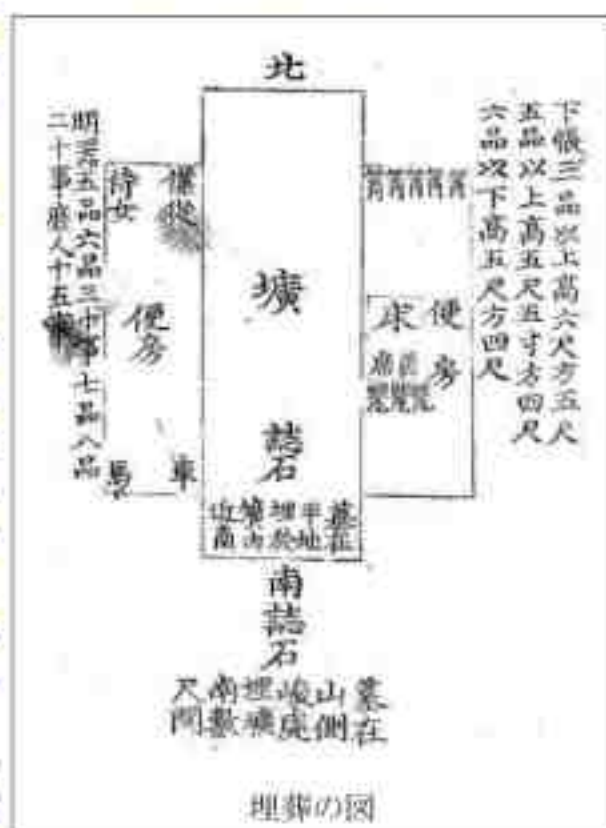 北
下帳三品以上高六尺方五尺
五品以上高五尺五寸方四尺
六品以下高五尺方四尺
便房
壙
誌石
墓在
平地
埋於
壙内
近南
僕從
侍女
便房
車
馬
明器五品六品三十事七品八品
二十事庶人十五事
南
誌石
墓在
山側
峻處
埋壙
南數
尺間
埋葬の図